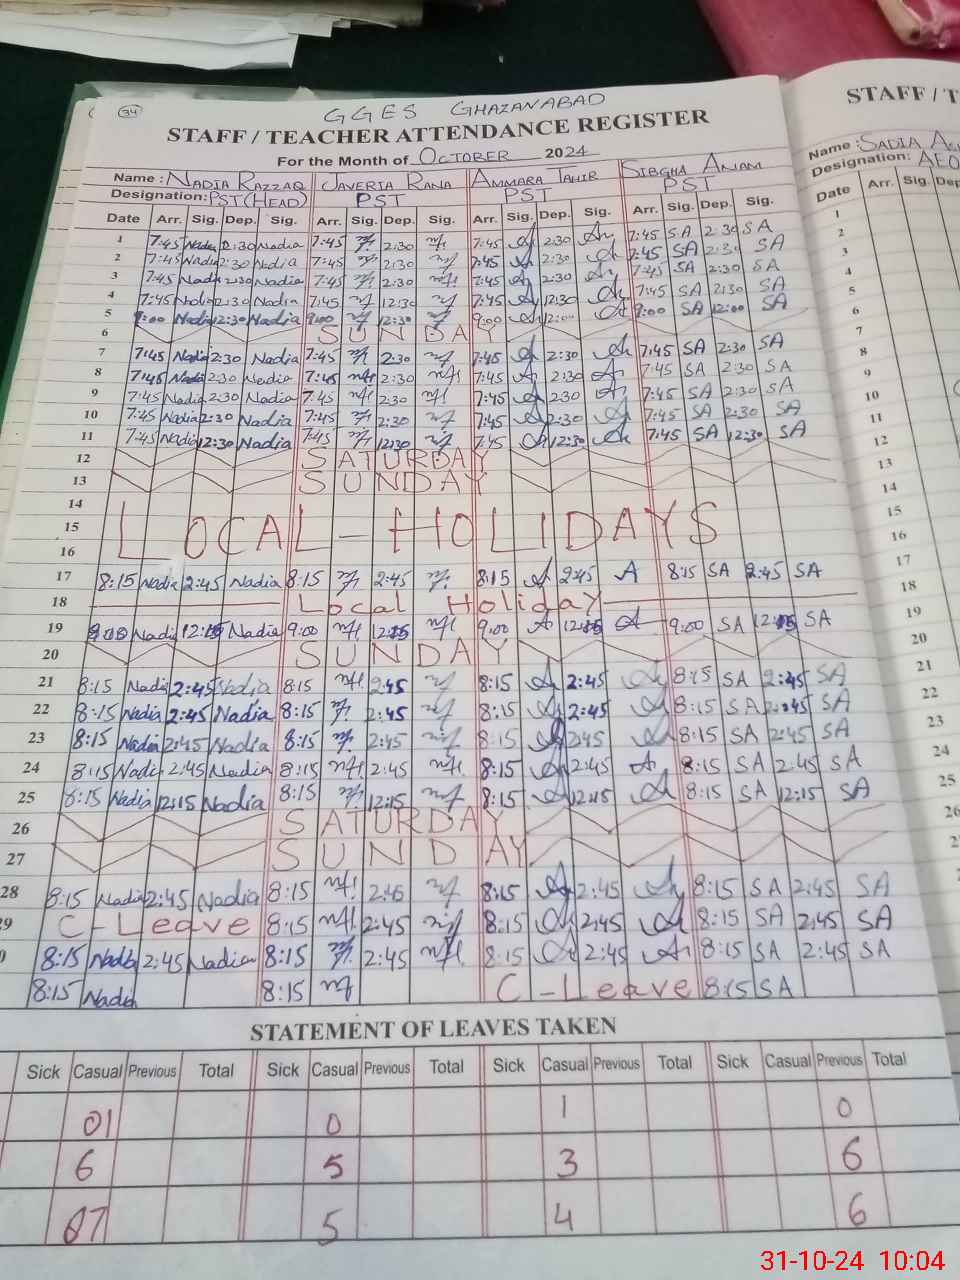 34
GGES GHAZANABAD
STAFF / TEACHER ATTENDANCE REGISTER
For the Month of OCTOBER 2024
Name : NADIA RAZZAQ JAVERIA RANA AMMARA TAHIR SIBGHA ANAM
Designation: PST(HEAD) PST PST PST
Date Arr. Sig. Dep. Sig. Arr. Sig. Dep. Sig. Arr. Sig. Dep. Sig. Arr. Sig. Dep. Sig.
1 7:45 Nadia 2:30 Nadia 7:45 2:30 7:45 2:30 7:45 SA 2:30 SA
2 7:45 Nadia 2:30 Nadia 7:45 2:30 7:45 2:30 7:45 SA 2:30 SA
3 7:45 Nadia 2:30 Nadia 7:45 2:30 7:45 2:30 7:45 SA 2:30 SA
4 7:45 Nadia 2:30 Nadia 7:45 12:30 7:45 12:30 7:45 SA 2:30 SA
5 9:00 Nadia 12:30 Nadia 9:00 12:30 9:00 12:00 9:00 SA 12:00 SA
6 SUNDAY
7 7:45 Nadia 2:30 Nadia 7:45 2:30 7:45 2:30 7:45 SA 2:30 SA
8 7:45 Nadia 2:30 Nadia 7:45 2:30 7:45 2:30 7:45 SA 2:30 SA
9 7:45 Nadia 2:30 Nadia 7:45 2:30 7:45 2:30 7:45 SA 2:30 SA
10 7:45 Nadia 2:30 Nadia 7:45 2:30 7:45 2:30 7:45 SA 2:30 SA
11 7:45 Nadia 12:30 Nadia 7:45 12:30 7:45 12:30 7:45 SA 12:30 SA
12 SATURDAY
13 SUNDAY
14
15 LOCAL - HOLIDAYS
16
17 8:15 Nadia 2:45 Nadia 8:15 2:45 8:15 2:45 A 8:15 SA 2:45 SA
18 Local Holiday
19 9:00 Nadia 12:15 Nadia 9:00 12:15 9:00 12:15 9:00 SA 12:15 SA
20 SUNDAY
21 8:15 Nadia 2:45 Nadia 8:15 2:45 8:15 2:45 8:15 SA 2:45 SA
22 8:15 Nadia 2:45 Nadia 8:15 2:45 8:15 2:45 8:15 SA 2:45 SA
23 8:15 Nadia 2:45 Nadia 8:15 2:45 8:15 2:45 8:15 SA 2:45 SA
24 8:15 Nadia 2:45 Nadia 8:15 2:45 8:15 2:45 8:15 SA 2:45 SA
25 8:15 Nadia 12:15 Nadia 8:15 12:15 8:15 12:15 8:15 SA 12:15 SA
26 SATURDAY
27 SUNDAY
28 8:15 Nadia 2:45 Nadia 8:15 2:45 8:15 2:45 8:15 SA 2:45 SA
29 C-Leave 8:15 2:45 8:15 2:45 8:15 SA 2:45 SA
0 8:15 Nadia 2:45 Nadia 8:15 2:45 8:15 2:45 8:15 SA 2:45 SA
8:15 Nadia 8:15 C-Leave 8:15 SA
STATEMENT OF LEAVES TAKEN
Sick Casual Previous Total Sick Casual Previous Total Sick Casual Previous Total Sick Casual Previous Total
01 0 1 0
6 5 3 6
07 5 4 6
STAFF / T
Name : SADIA
Designation: AEO
Date Arr. Sig. Dep
1
2
3
4
5
6
7
8
9
10
11
12
13
14
15
16
17
18
19
20
21
22
23
24
25
26
31-10-24 10:04